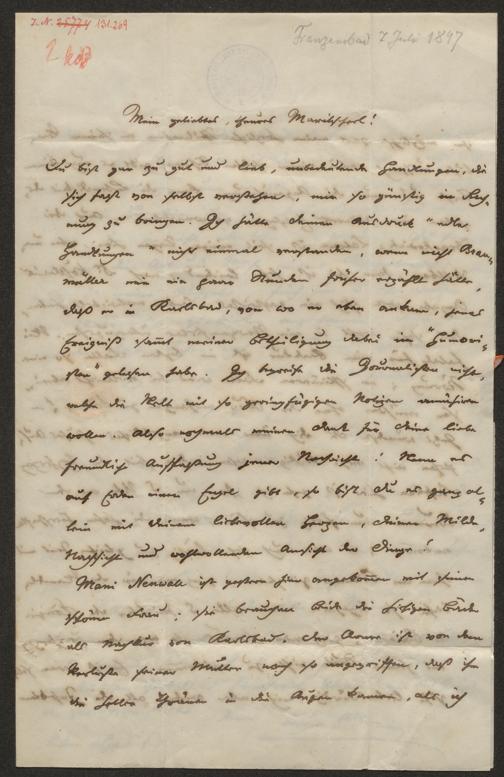 I. N. 25774 131.269
Franzensbad 7 Juli 1847
Mein geliebtes, theures Mariehscherl!
Du bist gar zu gut und lieb, unbedeutende Handlungen, die
sich fast von selbst verstehen, mir so günstig in Rech-
nung zu bringen. Ich hätte deinen Ausdruck "edle
Handlungen" nicht einmal verstanden, wenn nicht Brau-
müller mir ein paar Stunden früher erzählt hätte,
daß er in Karlsbad, von wo er eben ankam, jenes
Ereigniß sammt meiner Betheiligung dabei im "Humori-
sten" gelesen habe. Ich begreife die Journalisten nicht,
welche die Welt mit so geringfügigen Notizen amüsiren
wollen. Also nochmals meinen Dank für deine liebe
freundliche Auffassung jener Nachricht! Wenn es
auf Erden einen Engel gibt, so bist du es ganz al-
lein mit deinem liebevollen Herzen, deiner Milde,
Nachsicht und wohlwollenden Ansicht der Dinge!
ist gestern hier angekommen mit seiner
schönen Frau; sie brauchen beide die hiesigen Bäder
als Nachkur von Karlsbad. Der Arme ist von dem
Verluste seiner Mutter noch so angegriffen, daß ihm
die hellen Thränen in die Augen kamen, als ich